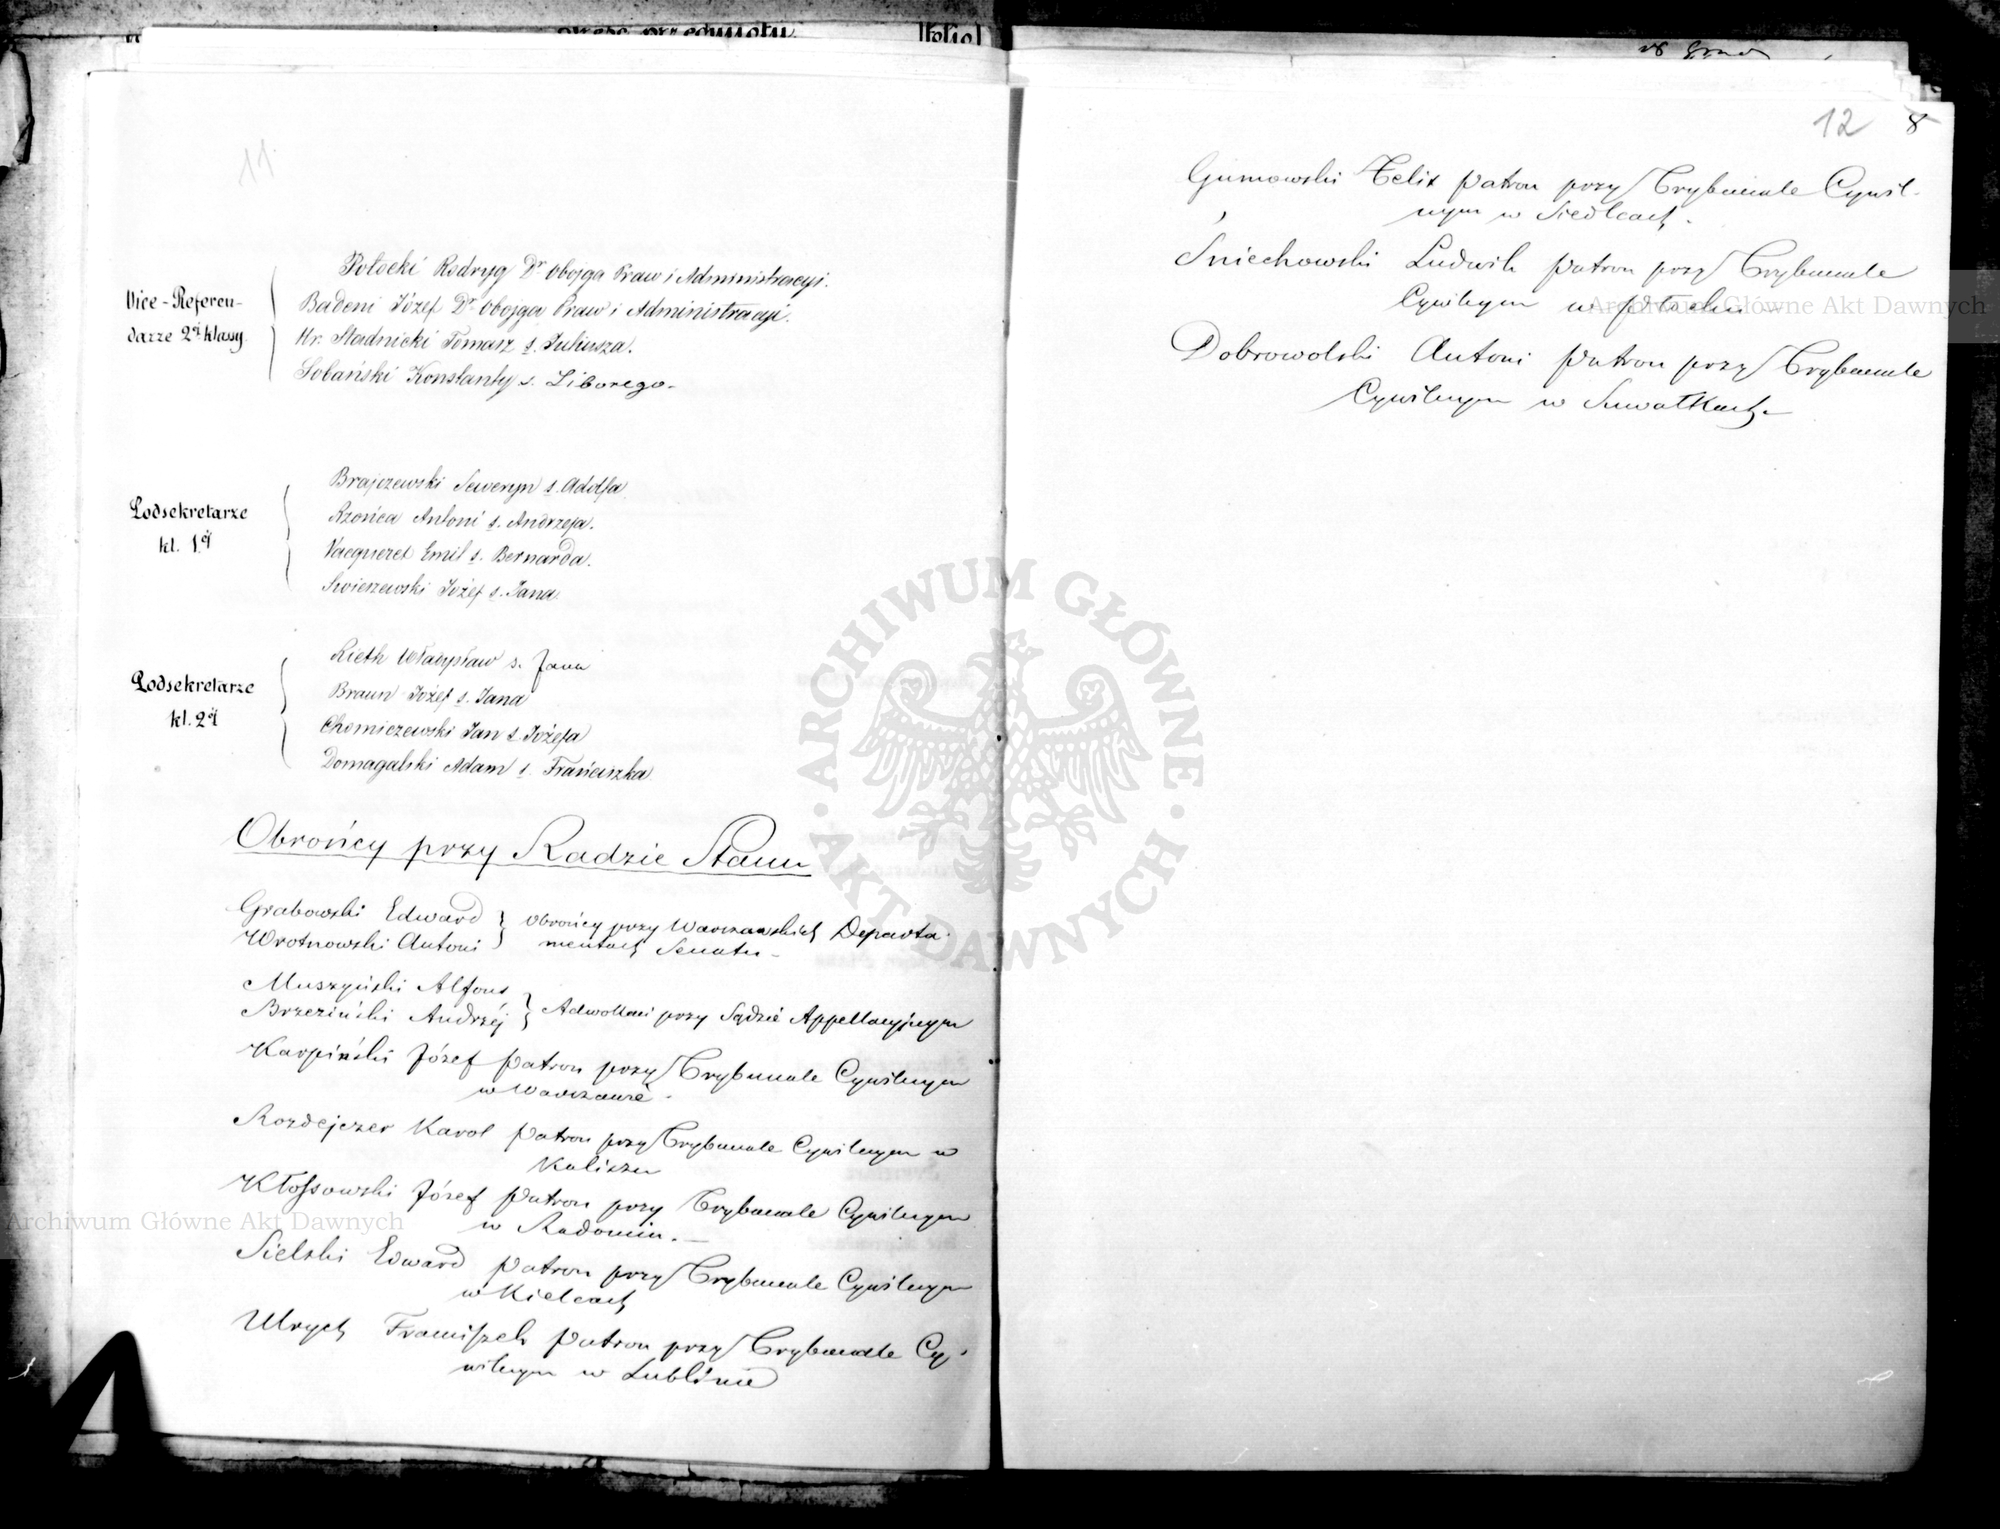 11
Vice-Referen-
darze 2ej klassy
Potocki Rodryg Dr Obojga Praw i Administracyi.
Badeni Józef Dr Obojga Praw i Administracyi.
Hr. Stadnicki Tomasz s. Juliusza.
Sobański Konstanty s. Liborego.
Podsekretarze
kl. 1ej
Brajczewski Seweryn s. Adolfa.
Rzońca Antoni s. Andrzeja.
Vacqueret Emil s. Bernarda.
Swieszewski Józef s. Jana.
Podsekretarze
kl. 2ej
Rieth Władysław s. Jana
Braun Józef s. Jana
Chomiczewski Jan s. Józefa
Domagalski Adam s. Franciszka
Obrońcy przy Radzie Stanu
Grabowski Edward } Obrońcy przy Warszawskich Departa-
Wrotnowski Antoni } mentach Senatu -
Muszyński Alfons
Brzeziński Andrzéj } Adwokaci przy Sądzie Appellacyjnym
Karpiński Józef Patron przy Trybunale Cywilnym
w Warszawie.
Rozdejczer Karol Patron przy Trybunale Cywilnym w
Kaliszu
Kłossowski Józef Patron przy Trybunale Cywilnym
w Radomiu. -
Sielski Edward Patron przy Trybunale Cywilnym
w Kielcach
Ulrych Franciszek Patron przy Trybunale Cy-
wilnym w Lublinie
12 8
Gumowski Felix Patron przy Trybunale Cywil-
nym w Siedlcach.
Śniechowski Ludwik Patron przy Trybunale
Cywilnym w Płocku -
Dobrowolski Antoni Patron przy Trybunale
Cywilnym w Suwałkach -
ARCHIWUM GŁÓWNE · AKT DAWNYCH ·
Archiwum Główne Akt Dawnych
Archiwum Główne Akt Dawnych